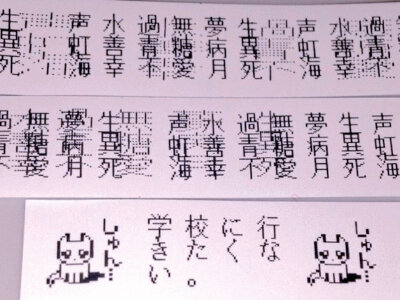 生声水過無夢生声水過
異虹善青糖病異虹善青
死海幸不愛月死海幸不
過無夢生声水過無夢生声
青糖病異虹善青糖病異虹
不愛月死海幸不愛月死海
しゅん…
学校に行
きたくな
い。
しゅん…